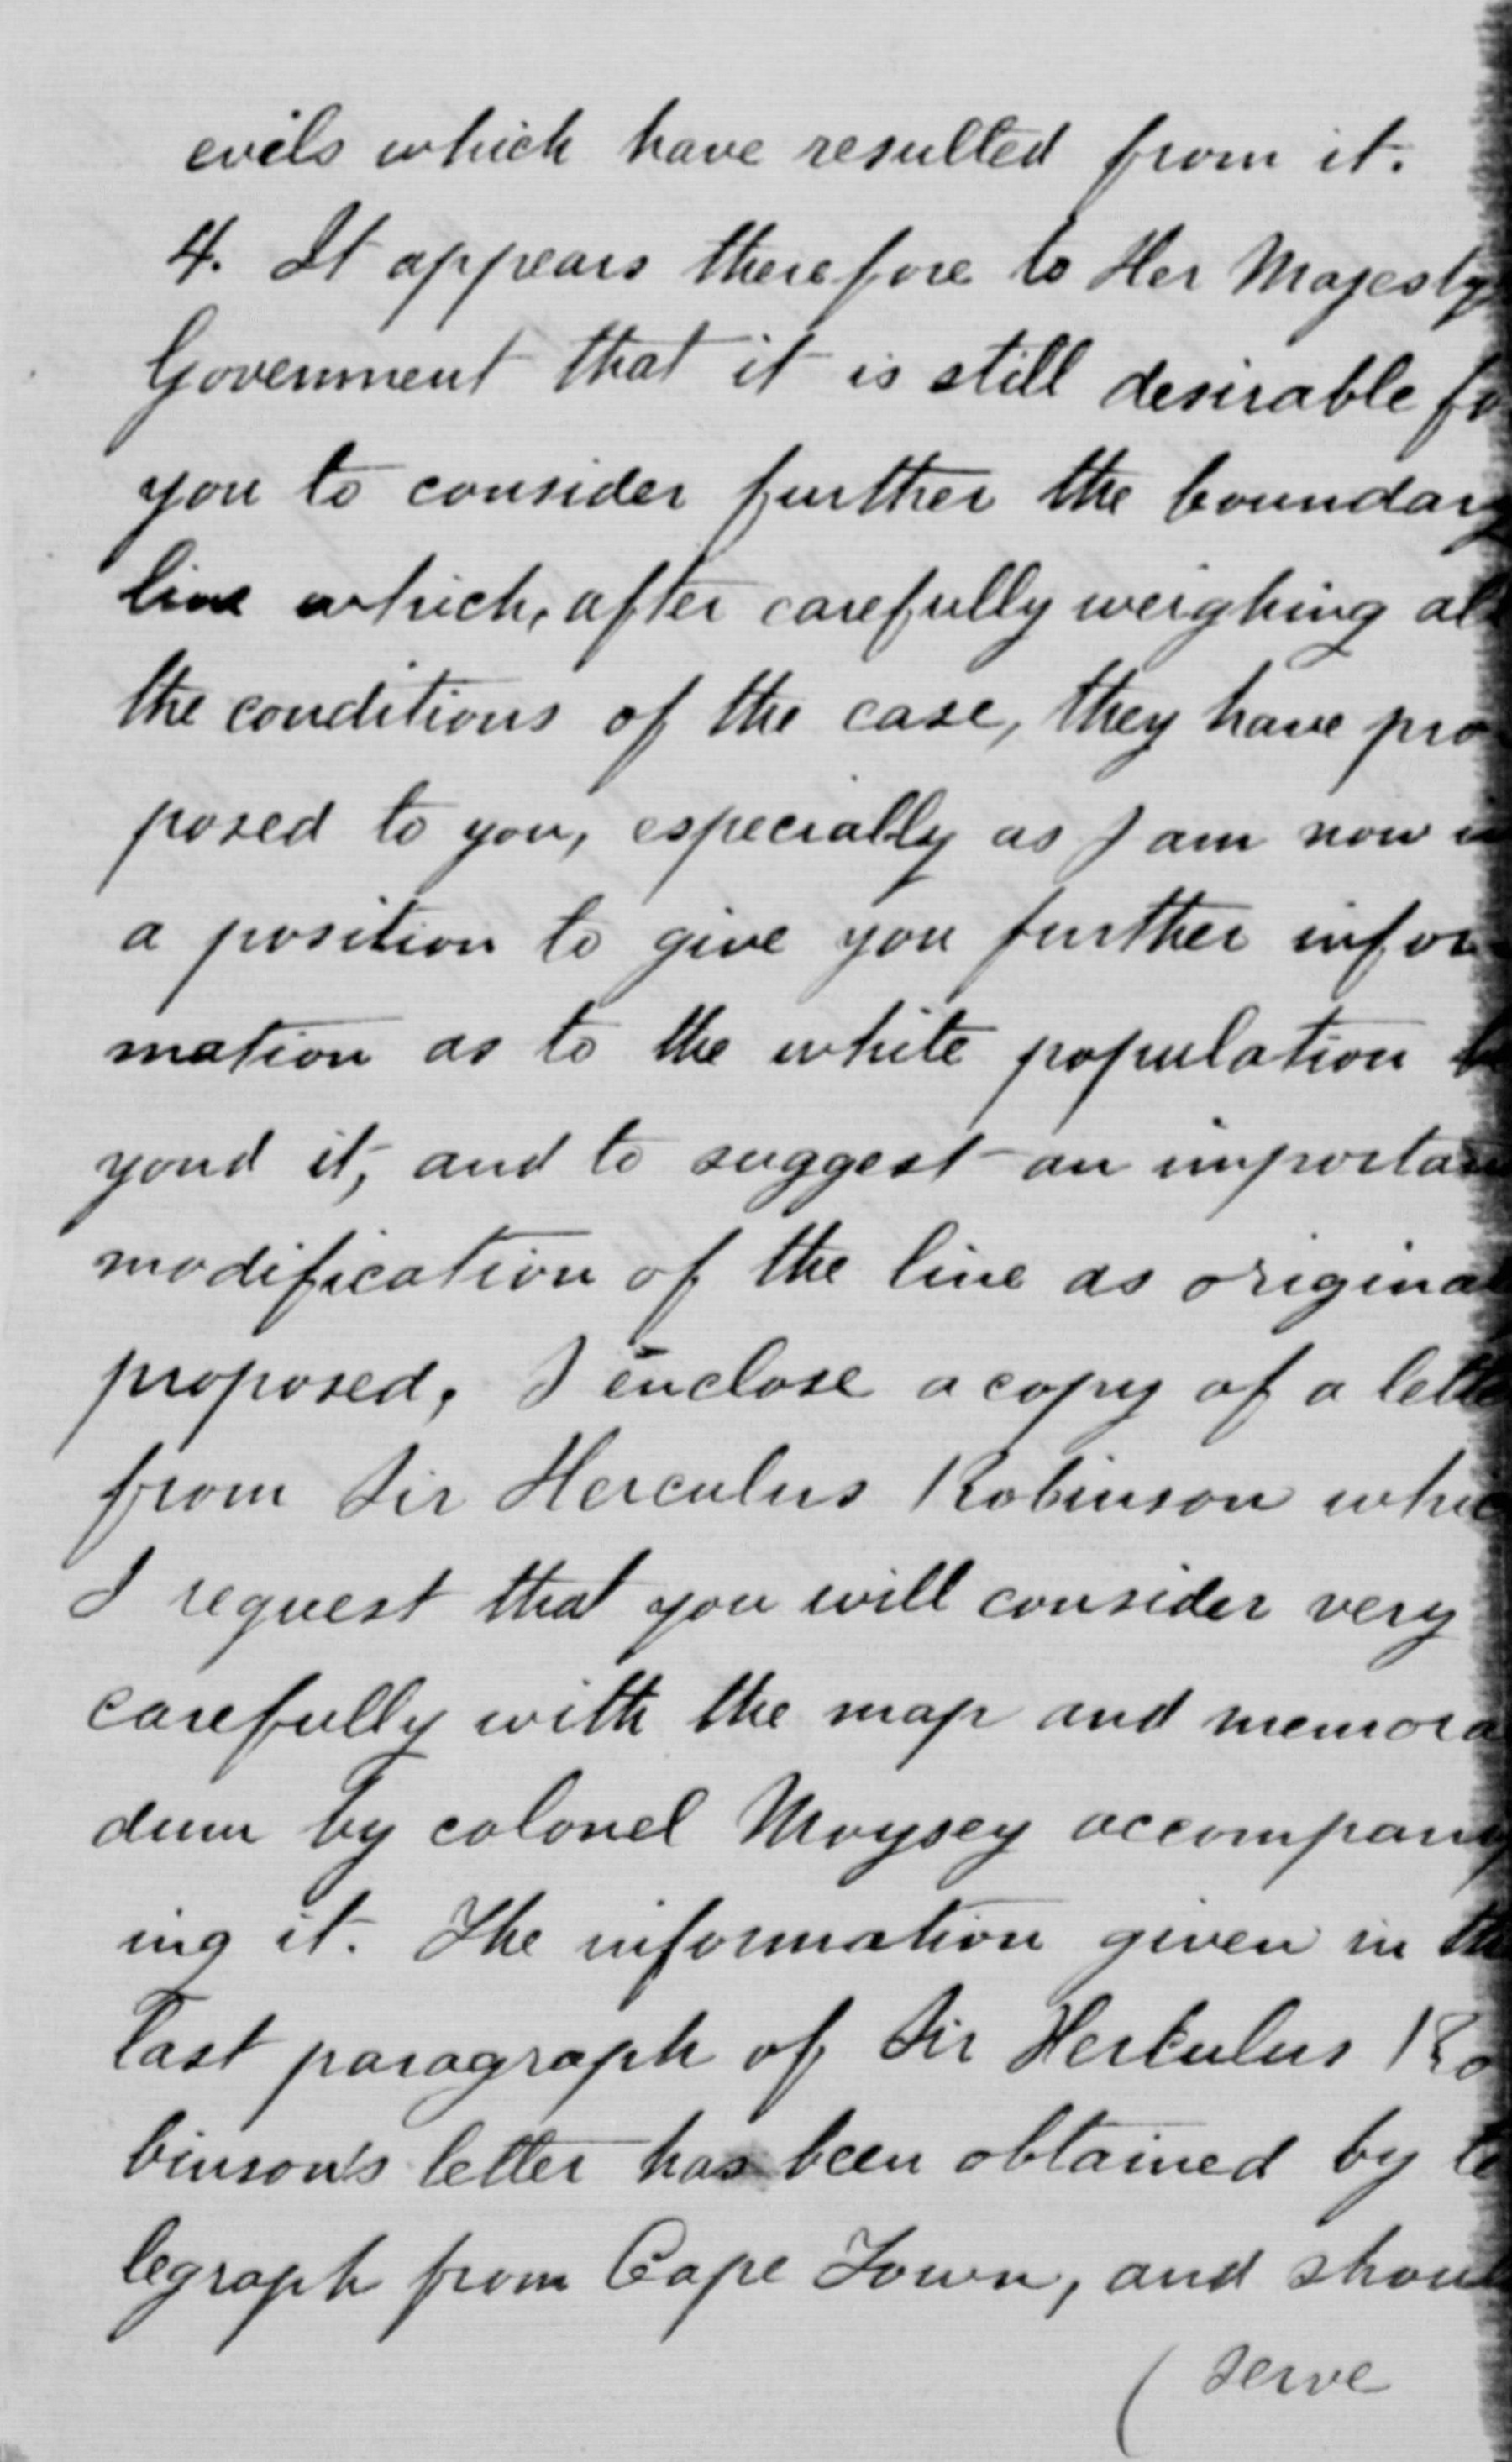 evils which have resulted from it.
4. It appears therefore to Her Majesty
Government that it is still desirable fo
you to consider further the boundary
line which, after carefully weighing al
the conditions of the case, they have pro
posed to you, especially as I am now i
a position to give you further infor
mation as to the white population b
yond it, and to suggest an importan
modification of the line as origina
proposed. I enclose a copy of a lette
from Sir Herculus Robinson whic
I request that you will consider very
carefully with the map and memora
dum by colonel Moysey accompany
ing it. The information given in the
last paragraph of Sir Herkulus Ro
binson's letter has been obtained by te
legraph from Cape Town, and shoul
( serve